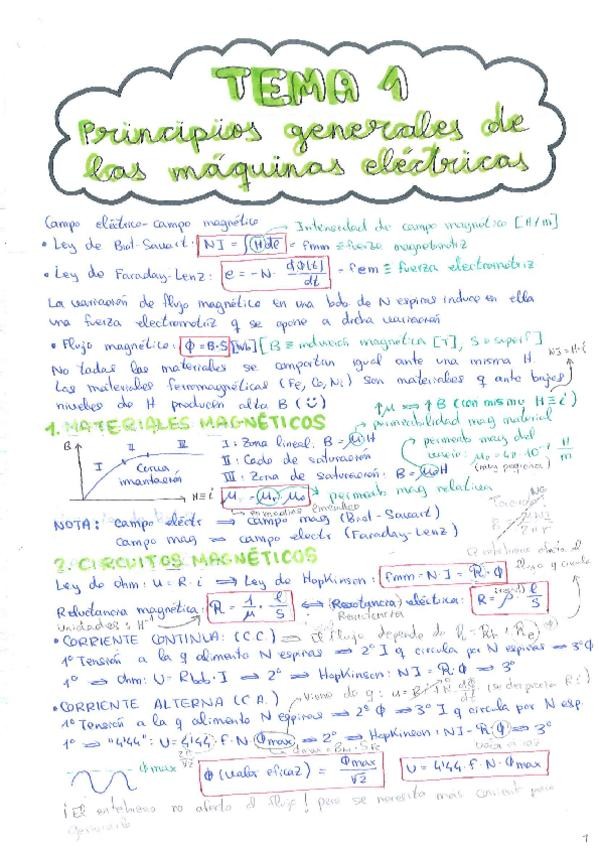 TEMA 1
Principios generales de
las máquinas eléctricas
Campo eléctrico-campo magnético
Intensidad de campo magnético [A/m]
• Ley de Biot-Savart: NI = ∫H dl = fmm ≡ fuerza magnetomotriz
• Ley de Faraday-Lenz: e = -N · dϕ(t)/dt = fem ≡ fuerza electromotriz
La variación de flujo magnético en una bob de N espiras induce en ella
una fuerza electromotriz q se opone a dicha variación
• Flujo magnético: ϕ = B·S [Wb] [B ≡ inducción magnética [T], S ≡ superf]
NI = H·l
No todos los materiales se comportan igual ante una misma H.
Los materiales ferromagnéticos (Fe, Co, Ni) son materiales q ante bajos
niveles de H producen alta B (:))
↑μ ⇒ ↑B (con mismo H ≡ i)
1. MATERIALES MAGNÉTICOS
permeabilidad mag material
B
I
II
III
Curva
imantación
H ≡ i
I: Zona lineal. B = μH
II: Codo de saturación
III: Zona de saturación: B = μ₀H
permeab mag del
vacío: μ₀ = 4π·10⁻⁷ H/m
(muy pequeña)
μ = μr · μ₀ permeab mag relativa
NOTA: campo eléctr ⇒ campo mag (Biot-Savart)
campo mag ⇒ campo electr (Faraday-Lenz)
2. CIRCUITOS MAGNÉTICOS
Ley de ohm: U = R·i ⇒ Ley de Hopkinson: fmm = N·I = R·ϕ
Reluctancia magnética: R = 1/μ · l/S ⇔ (Resistencia) eléctrica: R = ρ l/S
unidades: H⁻¹
• CORRIENTE CONTINUA: (C.C.) ⇒ El flujo depende de
1º Tensión a la q alimento N espiras ⇒ 2º I q circula por N espiras ⇒ 3º ϕ
1º ⇒ Ohm: U = Rbb·I ⇒ 2º ⇒ Hopkinson: NI = R·ϕ ⇒ 3º
• CORRIENTE ALTERNA (C.A.) Viene de (se desprecia R·i)
1º Tensión a la q alimento N espiras ⇒ 2º ϕ ⇒ 3º I q circula por N esp.
1º ⇒ "4'44": U = 4'44·f·N·ϕmax ⇒ 2º ⇒ Hopkinson: NI = R·ϕ ⇒ 3º
ϕmax
ϕ (valor eficaz) = ϕmax/√2
U = 4'44·f·N·ϕmax
¡El entrehierro no afecta al flujo! pero se necesita más corriente para
generarlo
1